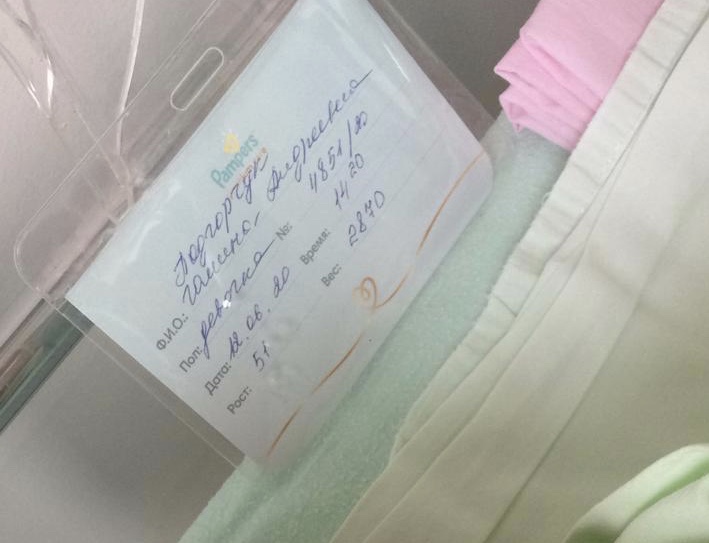 Pampers
Ф.И.О.: Подгорчук
Галина Андреевна
Пол: девочка №: 4851/20
Дата: 12.06.20 Время: 14 20
Рост: 51 Вес: 2870